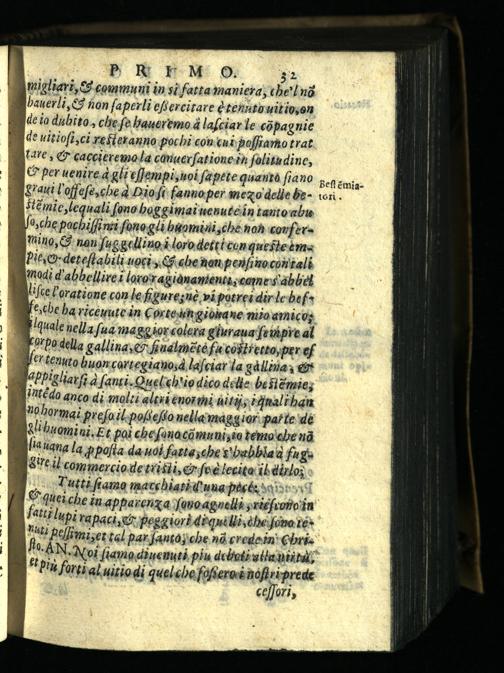 PRIMO. 32
migliari, & communi in si fatta maniera, che'l nō
hauerli, & non saperli essercitare è tenuto uitio, on
de io dubito, che se haueremo à lasciar le cōpagnie
de uitiosi, ci resteranno pochi con cui possiamo trat
tare, & caccieremo la conuersatione in solitudine,
& per uenire à gli essempi, uoi sapete quanto siano
graui l'offese, che à Dio si fanno per mezo delle be-
stēmie, lequali sono hoggimai uenute in tanto abu
so, che pochissimi sono gli huomini, che non confer-
mino, & non suggellino i loro detti con queste em-
pie, & detestabili uoci, & che non pensino con tali
modi d'abbellire i loro ragionamenti, come s'abbel
lisce l'oratione con le figure; nè vi potrei dir le bef-
fe, che ha riceuute in Corte un giouane mio amico;
ilquale nella sua maggior colera giuraua sempre al
corpo della gallina, & finalmēte fu costretto, per es
ser tenuto buon cortegiano, à lasciar la gallina, &
appigliarsi à santi. Quel ch'io dico delle bestēmie,
intēdo anco di molti altri enormi uitij, i quali han
no hormai preso il possesso nella maggior parte de
gli huomini. Et poi che sono cōmuni, io temo che nō
sia uana la proposta da uoi fatta, che s'habbia à fug-
gire il commercio de tristi, & se è lecito il dirlo;
Tutti siamo macchiati d'una pece;
& quei che in apparenza sono agnelli, riescono in
fatti lupi rapaci, & peggiori di quelli, che sono te-
nuti pessimi, et tal par santo, che nō crede in Chri-
sto. AN. Noi siamo diuenuti piu deboli alla uirtù,
et più forti al uitio di quel che fossero i nostri prede
cessori,
Bestēmia-
tori.